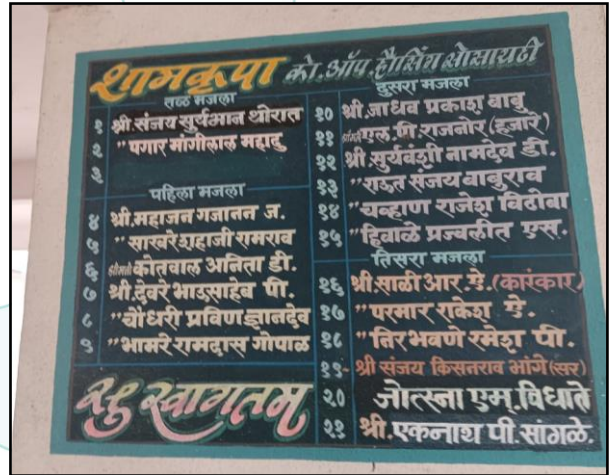 शामकृपा को.ऑप.हौसिंग सोसायटी
तळ मजला
१ श्री.संजय सुर्यभान थोरात
२ "पगार मांगीलाल महादु
३
पहिला मजला
४ श्री.महाजन गजानन ज.
५ "साखरे शहाजी रामराव
६ श्रीमती कोतवाल अनिता डी.
७ श्री.देवरे भाऊसाहेब पी.
८ "चौधरी प्रविण ज्ञानदेव
९ "भामरे रामदास गोपाळ
सुस्वागतम
दुसरा मजला
१० श्री.जाधव प्रकाश बाबु
११ श्रीमती एल.पी.राजनोर(हजारे)
१२ श्री.सुर्यवंशी नामदेव डी.
१३ "राऊत संजय बाबुराव
१४ "चव्हाण राजेश विठोबा
१५ "हिवाळे प्रज्वलीत एस.
तिसरा मजला
१६ श्री.साळी आर.ऐ.(कारंकार)
१७ "परमार राकेश ऐ.
१८ "निरभवणे रमेश पी.
१९- श्री संजय किसनराव भांगे(सर)
२० जोत्स्ना एम्.विधाते
२१ श्री.एकनाथ पी.सांगळे.